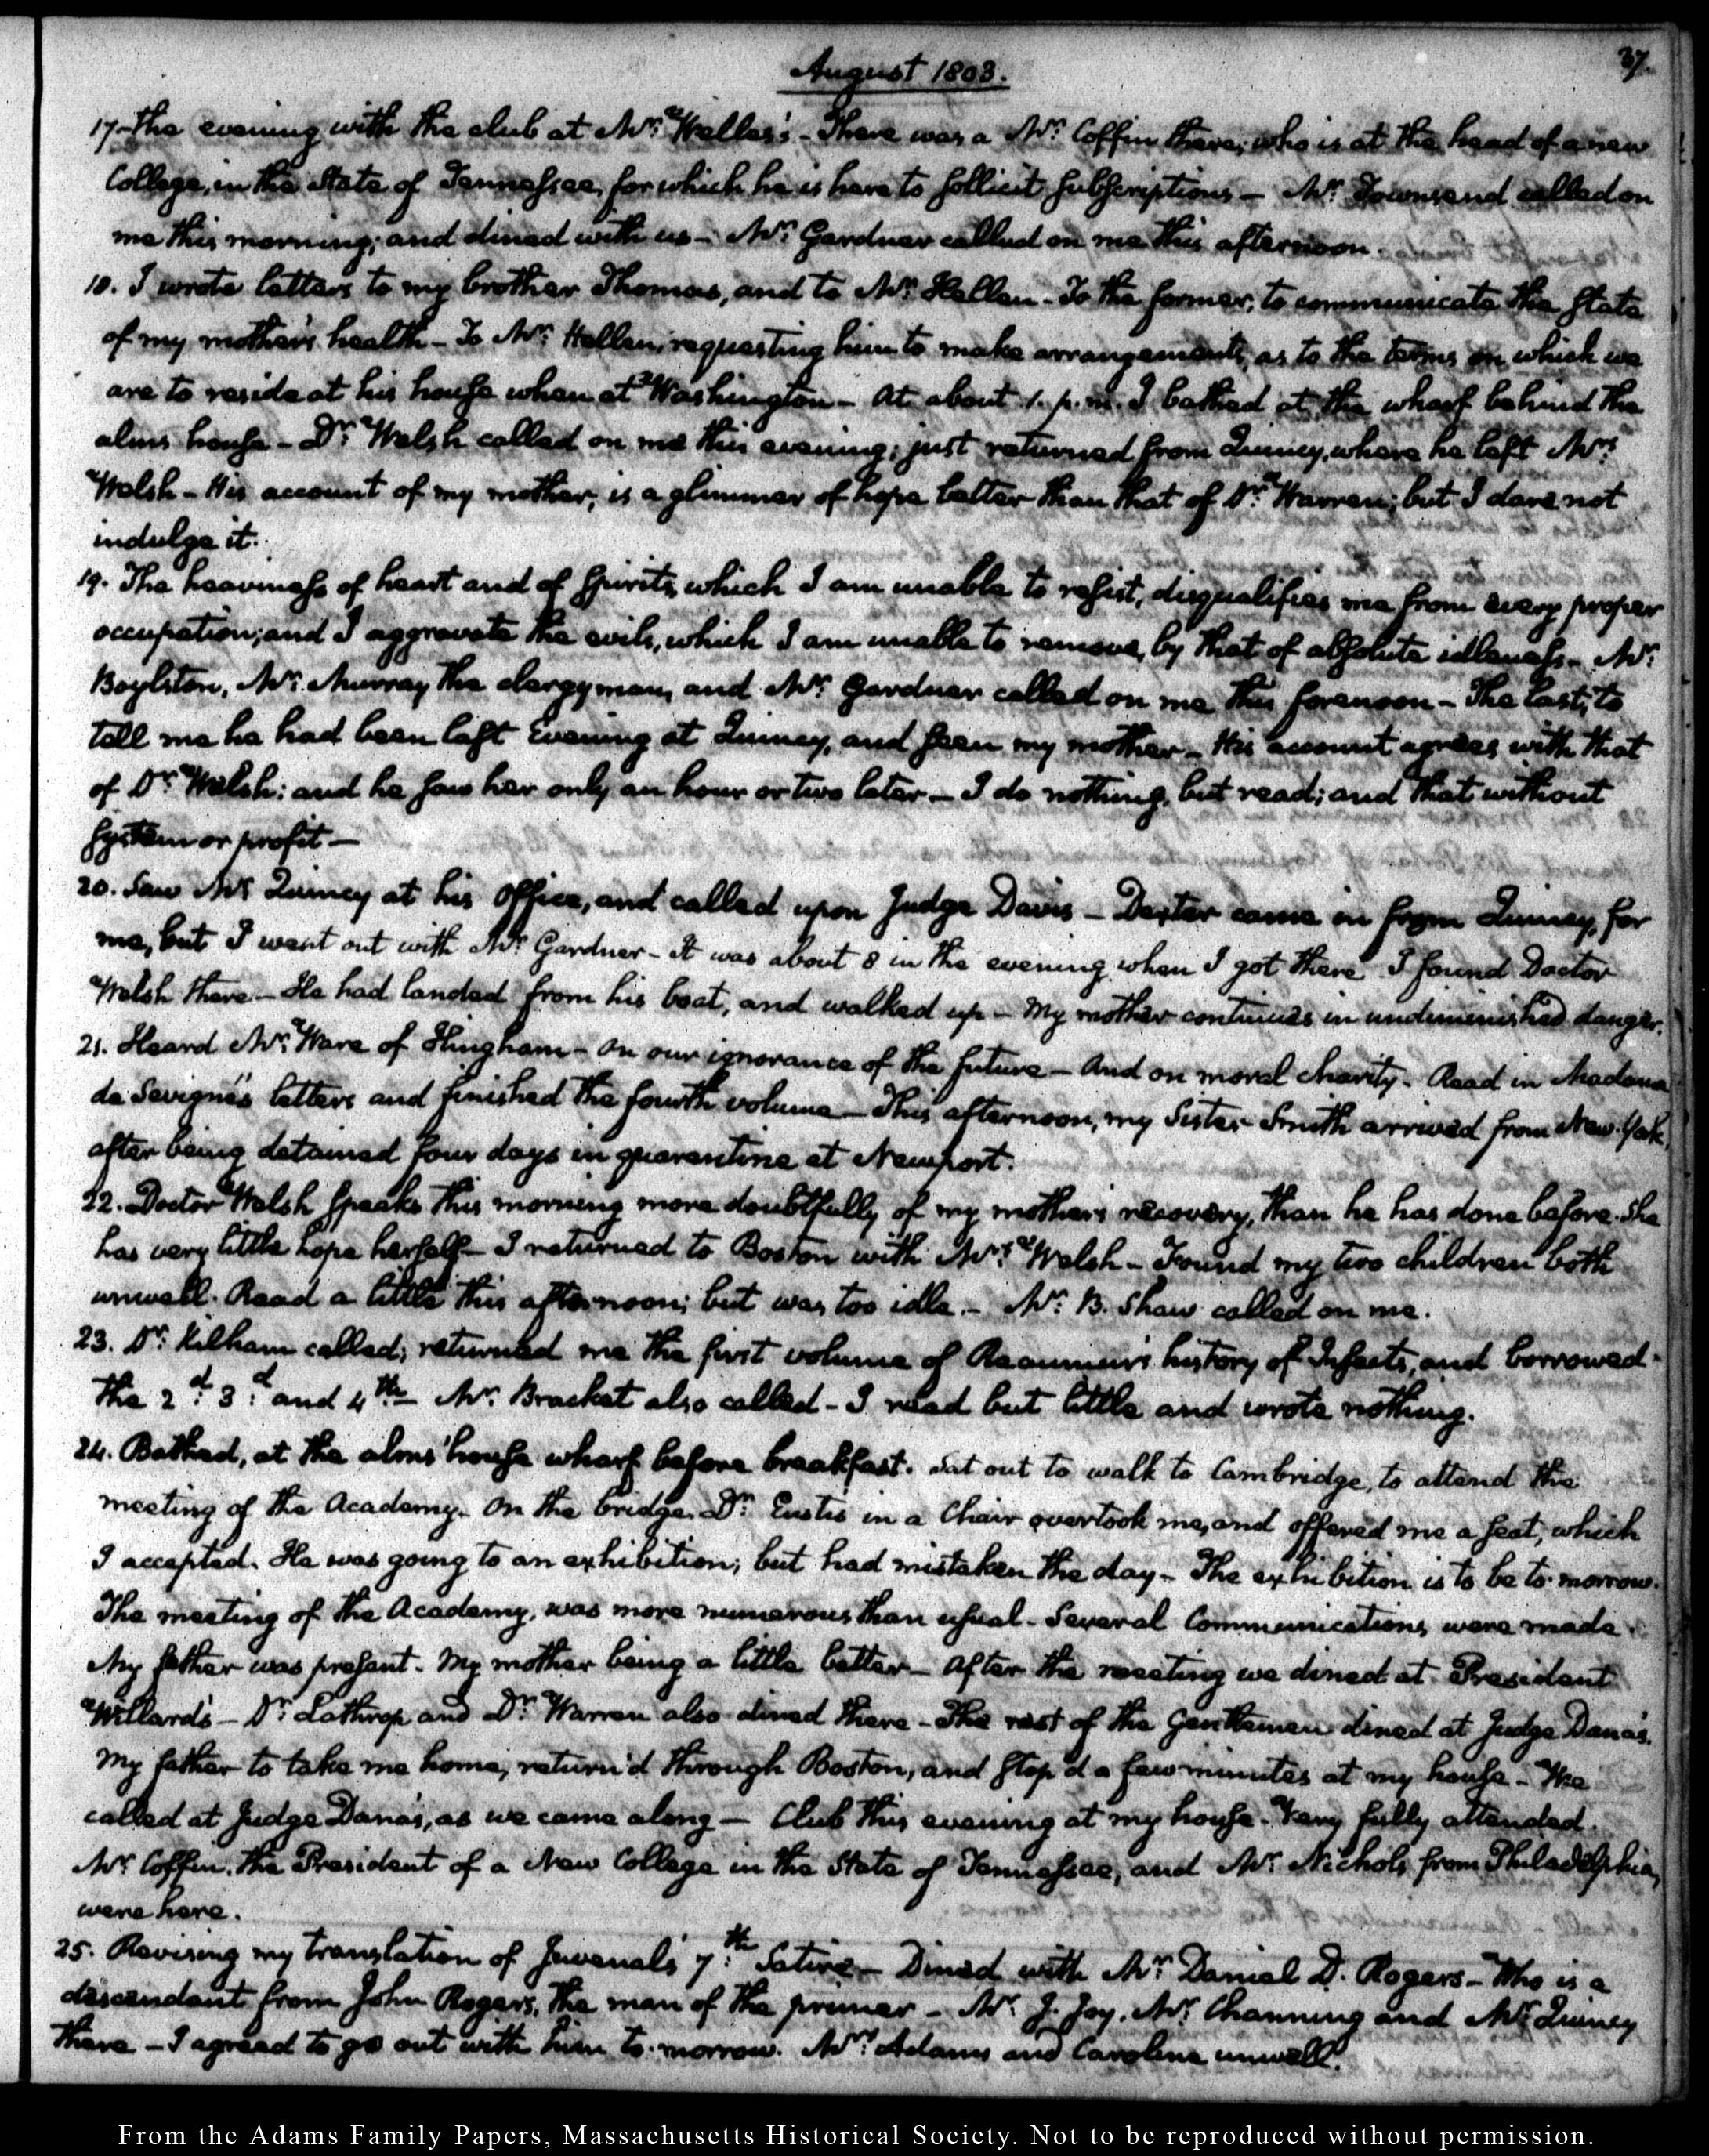 37.
August 1803.
17. The evening with the club at Mr: Welles's - There was a Mr: Coffin there, who is at the head of a new
College, in the State of Tennessee, for which he is here to sollicit subscriptions — Mr: Townsend called on
me this morning; and dined with us - Mr: Gardner called on me this afternoon.
18. I wrote letters to my brother Thomas, and to Mr: Hellen - To the former, to communicate the state
of my mother's health - To Mr: Hellen, requesting him to make arrangements, as to the terms on which we
are to reside at his house when at Washington - At about 1. p.m. I bathed at the wharf behind the
alms house - Dr: Welsh called on me this evening; just returned from Quincy, where he left Mrs:
Welsh - His account of my mother, is a glimmer of hope better than that of Dr: Warren; but I dare not
indulge it.
19. The heaviness of heart and of spirits, which I am unable to resist, disqualifies me from every proper
occupation; and I aggravate the evils, which I am unable to remove, by that of absolute idleness - Mr:
Boylston, Mr: Murray the clergyman, and Mr: Gardner called on me this forenoon - The last, to
tell me he had been last Evening at Quincy, and seen my mother - His account agrees with that
of Dr: Welsh: and he saw her only an hour or two later - I do nothing, but read; and that without
system or profit —
20. Saw Mr: Quincy at his office, and called upon Judge Davis - Dexter came in from Quincy, for
me, but I went out with Mr: Gardner - It was about 8 in the evening when I got there I found Doctor
Welsh there - He had landed from his boat, and walked up - My mother continues in undiminished danger.
21. Heard Mr: Ware of Hingham - On our ignorance of the future - And on moral charity. Read in Madame
de Sevigné's letters and finished the fourth volume - This afternoon, my Sister Smith arrived from New-York,
after being detained four days in quarantine at Newport.
22. Doctor Welsh speaks this morning more doubtfully of my mother's recovery, than he has done before. She
has very little hope herself - I returned to Boston with Mrs: Welsh - Found my two children both
unwell. Read a little this afternoon; but was too idle. - Mr: B. Shaw called on me.
23. Dr: Kilham called; returned me the first volume of Reaumur's history of Insects, and borrowed
the 2d: 3d: and 4th: - Mr: Bracket also called - I read but little and wrote nothing.
24. Bathed, at the alms' house wharf before breakfast. Sat out to walk to Cambridge, to attend the
meeting of the Academy. On the bridge. Dr: Eustis in a Chair overtook me, and offered me a seat, which
I accepted. He was going to an exhibition; but had mistaken the day - The exhibition is to be to-morrow.
The meeting of the Academy, was more numerous than usual. Several Communications were made.
My father was present. My mother being a little better - After the meeting we dined at President
Willard's - Dr: Lathrop and Dr: Warren also dined there - The rest of the Gentlemen dined at Judge Dana's.
My father to take me home, return'd through Boston, and stop'd a few minutes at my house - We
called at Judge Dana's, as we came along — Club this evening at my house. Very fully attended.
Mr: Coffin, the President of a New College in the State of Tennessee, and Mr: Nichols from Philadelphia,
were here.
25. Revising my translation of Juvenal's 7th: Satire - Dined with Mr: Daniel D. Rogers - Who is a
descendant from John Rogers, the man of the primer - Mr: J. Joy, Mr: Channing and Mr: Quincy
there - I agreed to go out with him to-morrow. Mrs: Adams and Caroline unwell.
From the Adams Family Papers, Massachusetts Historical Society. Not to be reproduced without permission.